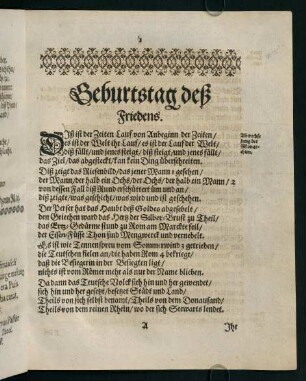 Geburtstag deß
Friedens.
Diß ist der Zeiten Lauf von Anbeginn der Zeiten/
Des ist der Welt ihr Lauf/ es ist der Lauf der Welt/
daß fällt/ und jenes steigt/ diß steigt/ und jenes fällt/
das Ziel/ das abgesteckt/ kan kein Ding überschreiten.
Diß zeigt das Riesenbild/ das jener Mann gesehen/
der Mann/ der halb ein Ochs/ der Ochs/ der halb ein Mann/
von dessen Fall diß Rund erschüttert
diß zeigte/ was geschicht/ was wird und ist geschehen.
Der Perser hat das Haubt deß Goldes abgehebt/
den Griechen ward das Hertz der Silber-Brust zu Theil/
das Ertz-Gedärme stund zu Rom am Marckte feil/
der Eisen-Füsse Thon sind Mengwerck und vernebelt.
Es ist wie Tennenspreu vom Sommrwind getrieben/
die Teutschen fielen an/ die haben Rom bekriegt/
daß die Besiegerin in der Besiegten ligt/
nichts ist vom Römer mehr als nur der Name blieben.
Da dann das Teutsche Volck sich hin und her gewendet/
sich hin und her gesetzt/ besetzet Städt und Land/
Theils von sich selbst benamt/ Theils von dem Donaustand/
Theils von dem reinen Rhein/ wo der sich Seewarts lendet.
A
Ihr